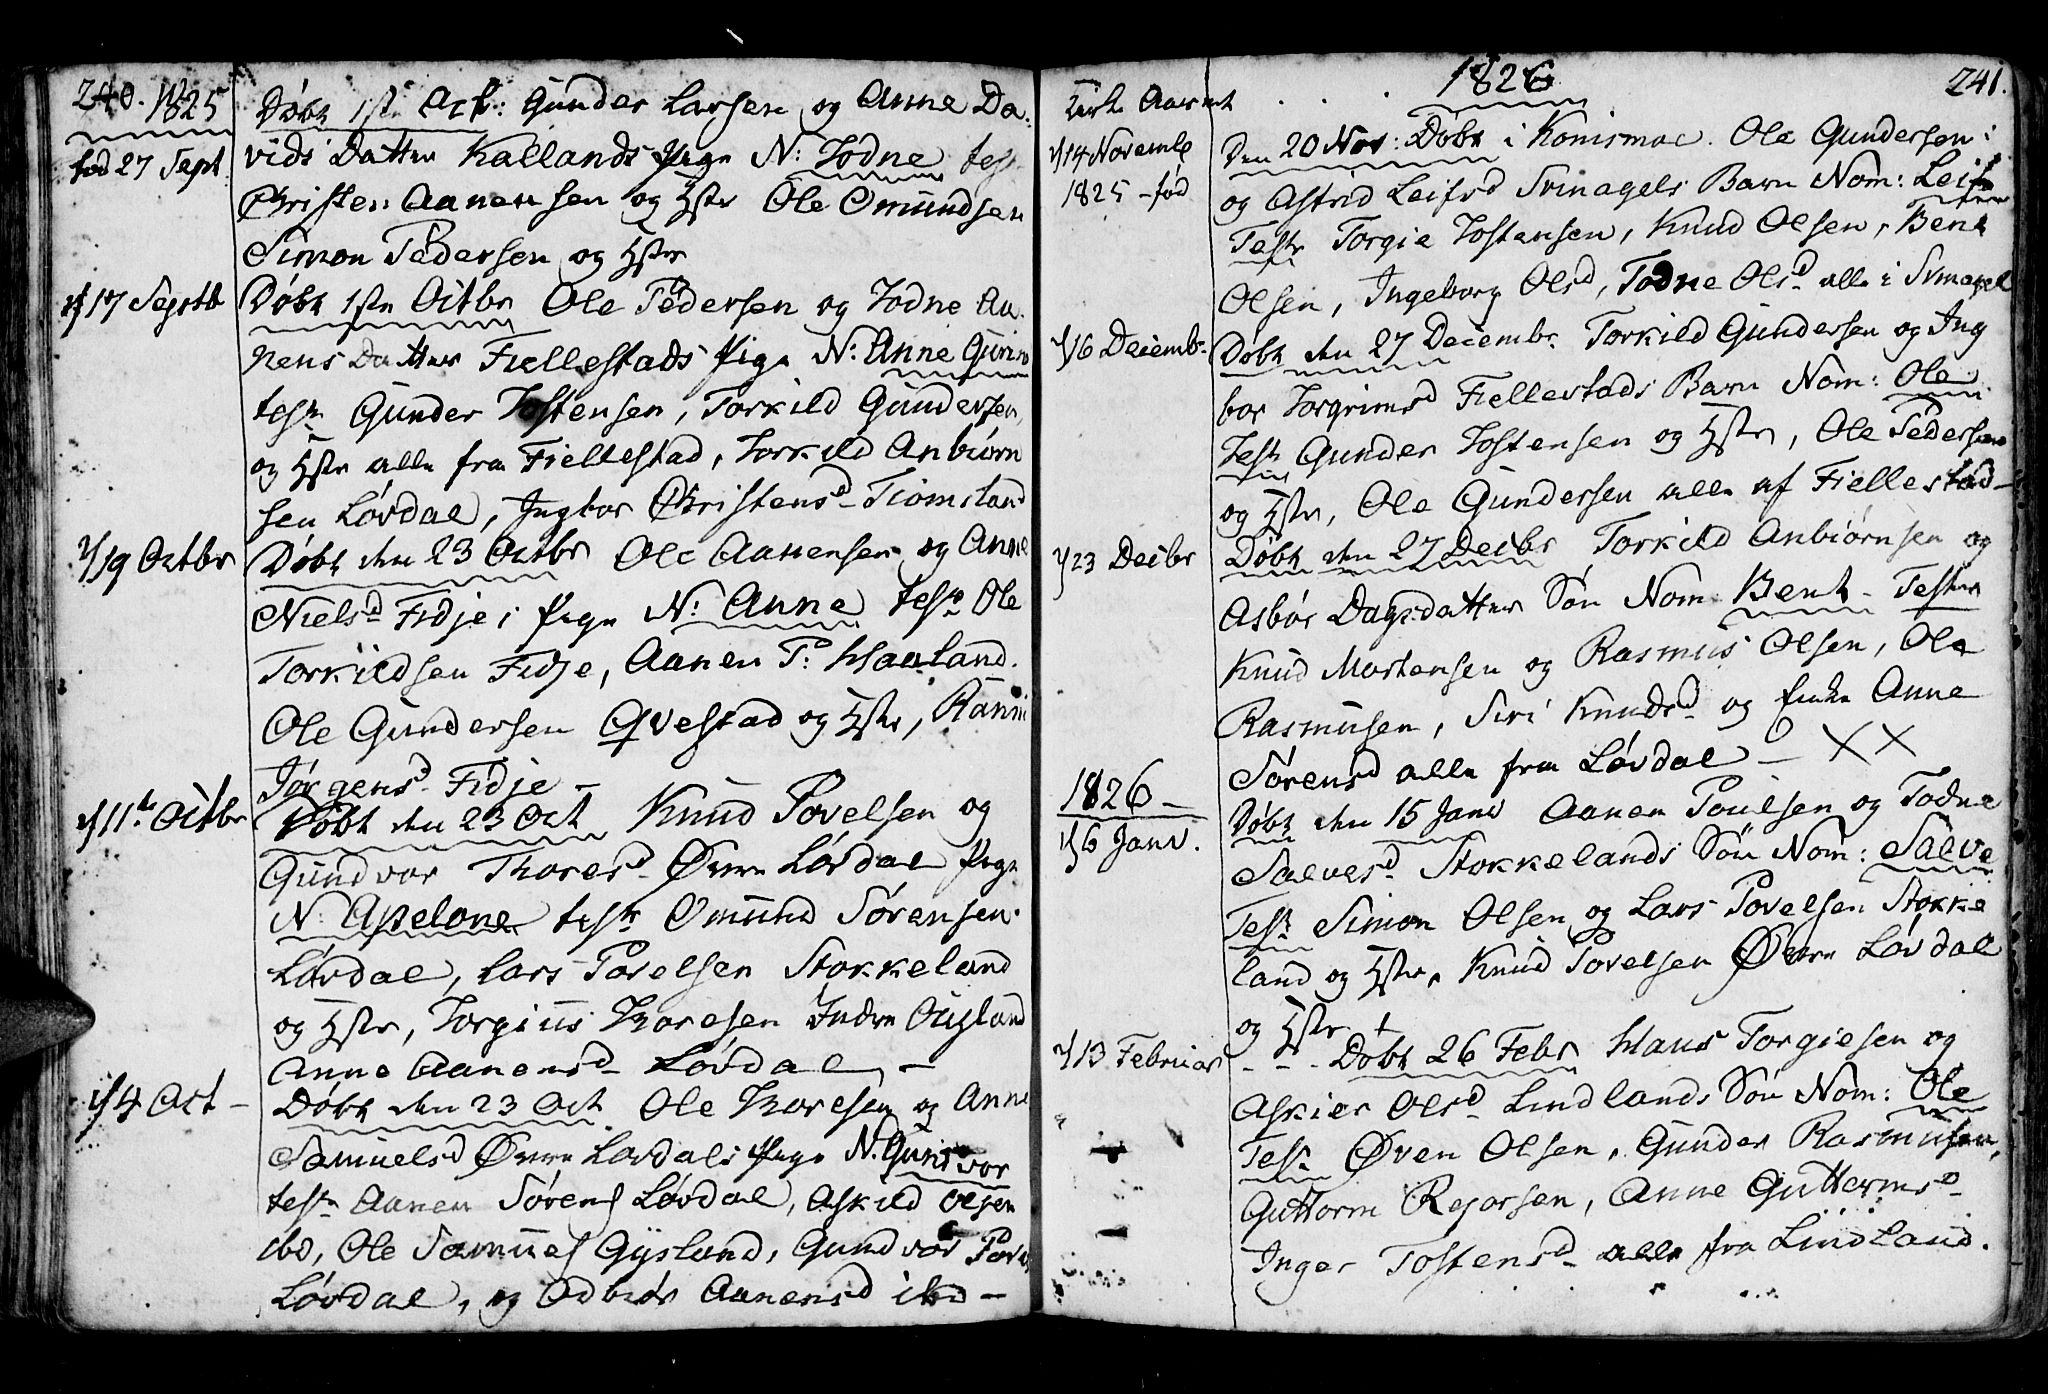 240. 1825
fød 27 Sept.
Døbt 1ste Oct: Gunder Larsen og Anne Da-
vids Datter Kallands Pige N: Todne test
Christen Aanensen og Hstr Ole Omundsen
Simon Pedersen og Hstr
f 17 Septb
Døbt 1ste Octbr Ole Pedersen og Todne Aa-
nens Datter Fiellestads Pige N: Anne Gurine
test Gunder Tostensen, Torkild Gundersen,
og Hstr alle fra Fiellestad, Torkild Anbiørn
sen Løvdal, Ingbor Christensd Tiomsland
f 19 Octbr
Døbt den 23 Octbr Ole Aanensen og Anne
Nielsd Fidje i Pige N: Anne test Ole
Torkildsen Fidje, Aanen P: Haaland.
Ole Gundersen Qvestad og Hstr, Ranni
Jørgensd Fidje –
f 11te Octbr
Døbt den 23 Oct Knud Povelsen og
Gundvor Thoresd Øvre Løvdal Pige
N: Apelone test Omund Sørensen
Løvdal, Lars Povelsen Stokkeland
og Hstr, Torgius Thoresen Indre Øigland
Anne Aanensd Løvdal –
f 4 Oct –
Døbt den 23 Oct Ole Thoresen og Anne
Samuelsd Øvre Løvdals Pige N. Gundvor
test Aanen Sørens Løvdal, Askild Olsen
ibd, Ole Samuels Gysland, Gundvor Pov
Løvdal, og Odbiør Aanensd ibd –
1826
241.
f 14 Novemb
1825 – fød
Den 20 Nov: Døbt i Konismoe. Ole Gundersen
og Astrid Leifsd Svinagels Barn Nom: Leif
Test Torgie Tostensen, Knud Olsen, Bent
Olsen, Ingeborg Olsd, Todne Olsd alle i Svinagel
f 16 Decemb
Døbt den 27 Decembr. Torkild Gundersen og Ing
bor Torgrimsd Fiellestads Barn Nom: Ole
Test Gunder Tostensen og Hstr, Ole Pedersen
og Hstr, Ole Gundersen alle af Fiellestad –
f 23 Decbr
Døbt den 27 Decbr Torkild Anbiørnsen og
Asbør Dagsdatter Søn Nom: Bent – Testes
Knud Mortensen og Rasmus Olsen, Ole
Rasmusen, Siri Knudsd og Enke Anne
Sørensd alle fra Løvdal – X X
1826 –
f 6 Janv.
Døbt den 15 Janv Aanen Poulsen og Todne
Salvesd Stokkelands Søn Nom: Salve
Test Simon Olsen og Lars Povelsen Stokke
land og Hstr, Knud Povelsen Øvre Løvdal
og Hstr
f 13 Februar
Døbt 26 Febr Hans Torgiesen og
Askier Olsd Lindlands Søn Nom: Ole
Test Øven Olsen, Gunder Rasmusen,
Guttorm Rejorsen, Anne Guttormsd
Inger Tostensd alle fra Lindland.